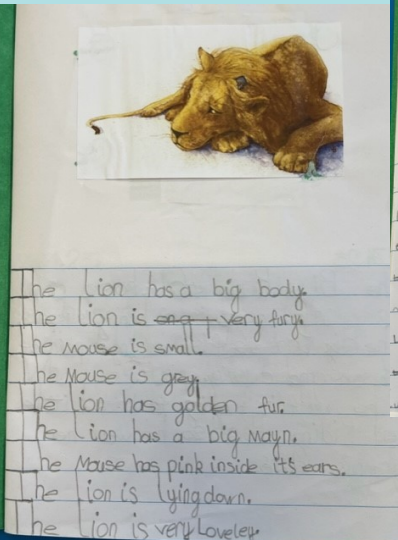 The Lion has a big body.
The Lion is very fury.
The Mouse is small.
The Mouse is grey.
The Lion has golden fur.
The Lion has a big Mayn.
The Mouse has pink inside it's ears.
The Lion is lying down.
The Lion is very Loveley.